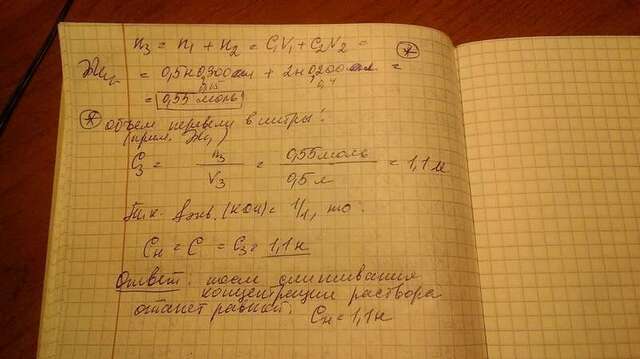 n₃ = n₁ + n₂ = C₁V₁ + C₂V₂ =
= 0,5н 0,300 л + 2н 0,200 л =
0,15 0,4
= 0,55 моль
* объем перевели в литры!
(прим.
C₃ = n₃ / V₃ = 0,55 моль / 0,5 л = 1,1 М
Т.к. fэкв. (KOH) = 1/1, то:
Cн = C = C₃ = 1,1 н
Ответ: после смешивания
концентрации раствора
станет равной. Cн = 1,1 н